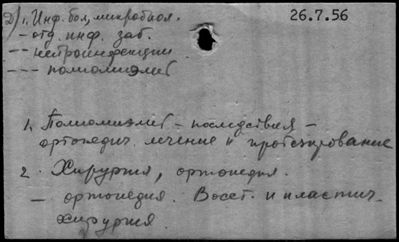 2) 1. Инф. бол. микробиол. 26.7.56
– отд. инф. заб.
– – нейроинфекции
– – – полиомиэлит
1. Полиомиэлит – последствия –
ортопедич. лечение и протезирование
2. Хирургия, ортопедия.
– ортопедия. Восст. и пластич.
хирургия